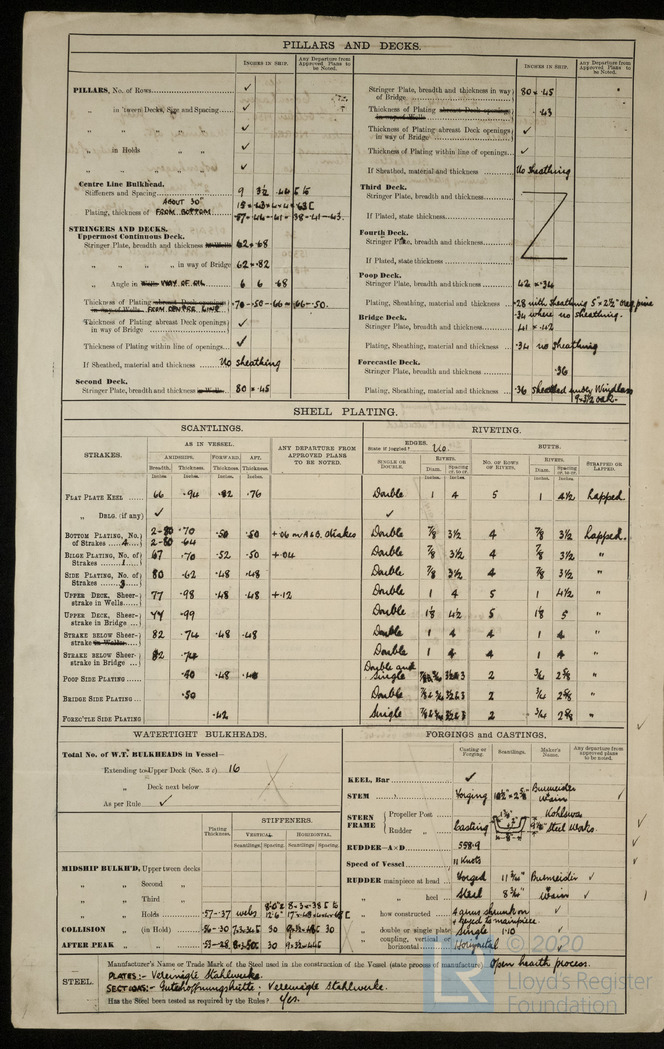 PILLARS AND DECKS.
INCHES IN SHIP.
Any Departure from Approved Plans to be Noted.
PILLARS, No. of Rows ✓
„ in 'tween Decks, Size and Spacing ✓
„ „ „ „ ✓
„ in Holds ✓
„ „ „ ✓
Centre Line Bulkhead.
Stiffeners and Spacing
ABOUT 30"
Plating, thickness of FROM BOTTOM
STRINGERS AND DECKS.
Uppermost Continuous Deck.
Stringer Plate, breadth and thickness in Wells 62 × .68
„ „ „ „ in way of Bridge 62 × .82
„ Angle in Wells WAY OF OIL 6 6 .68
Thickness of Plating abreast Deck openings in way of Wells FROM CENTRE LINE .70 - .50 - .66 - .66 - .50.
Thickness of Plating abreast Deck openings in way of Bridge ✓
Thickness of Plating within line of openings ✓
If Sheathed, material and thickness No sheathing
Second Deck.
Stringer Plate, breadth and thickness in Wells 80 × .45
INCHES IN SHIP.
Any Departure from Approved Plans to be Noted.
Stringer Plate, breadth and thickness in way of Bridge 80 × .45
Thickness of Plating abreast Deck openings in way of Wells .43
Thickness of Plating abreast Deck openings in way of Bridge ✓
Thickness of Plating within line of openings ✓
If Sheathed, material and thickness No sheathing
Third Deck.
Stringer Plate, breadth and thickness
If Plated, state thickness
Fourth Deck.
Stringer Plate, breadth and thickness
If Plated, state thickness
Poop Deck.
Stringer Plate, breadth and thickness 42 × .34
Plating, Sheathing, material and thickness .28 with sheathing 5" × 2½" oreg. pine
.34 where no sheathing.
Bridge Deck.
Stringer Plate, breadth and thickness 41 × .42
Plating, Sheathing, material and thickness .34 no sheathing
Forecastle Deck.
Stringer Plate, breadth and thickness .36
Plating, Sheathing, material and thickness .36 sheathed under Windlass
SHELL PLATING.
SCANTLINGS.
RIVETING.
STRAKES.
AS IN VESSEL.
AMIDSHIPS. FORWARD. AFT.
Breadth. Thickness. Thickness. Thickness.
Inches. Inches. Inches. Inches.
ANY DEPARTURE FROM APPROVED PLANS TO BE NOTED.
EDGES.
State if joggled? No
SINGLE OR DOUBLE.
RIVETS.
Diam. Spacing cr. to cr.
Inches. Inches.
BUTTS.
NO. OF ROWS OF RIVETS.
RIVETS.
Diam. Spacing cr. to cr.
Inches. Inches.
STRAPPED OR LAPPED.
FLAT PLATE KEEL 66 .94 .82 .76 Double 1 4 5 1 4½ Lapped
„ DBLG. (if any) ✓ ✓
BOTTOM PLATING, No. of Strakes 4 2-80 .70 .50 .50 +.06 in A & B. Strakes Double ⅞ 3½ 4 ⅞ 3½ Lapped.
2-80 .64
BILGE PLATING, No. of Strakes 1 67 .70 .52 .50 +.04 Double ⅞ 3½ 4 ⅞ 3½ „
SIDE PLATING, No. of Strakes 3 80 .62 .48 .48 Double ⅞ 3½ 4 ⅞ 3½ „
UPPER DECK, Sheerstrake in Wells 77 .98 .48 .48 +.12 Double 1 4 5 1 4½ „
UPPER DECK, Sheerstrake in Bridge 77 .99 Double 1⅛ 4½ 5 1⅛ 5 „
STRAKE BELOW Sheerstrake in Wells 82 .74 .48 .48 Double 1 4 4 1 4 „
STRAKE BELOW Sheerstrake in Bridge 82 .74 Double 1 4 4 1 4 „
POOP SIDE PLATING .40 .48 .40 Double and Single 2 ¾ 2⅝ „
BRIDGE SIDE PLATING .50 Double ⅞ & ¾ 3½ & 3 2 ¾ 2⅝ „
FOREC'TLE SIDE PLATING .42 Single ⅞ & ¾ 3½ & 3 2 ¾ 2⅝ „
WATERTIGHT BULKHEADS.
Total No. of W.T. BULKHEADS in Vessel—
Extending to Upper Deck (Sec. 3 c) 16
„ Deck next below
As per Rule ✓
Plating Thickness.
STIFFENERS.
VERTICAL. HORIZONTAL.
Scantlings. Spacing. Scantlings. Spacing.
Inches. Inches. Inches. Inches.
MIDSHIP BULKH'D, Upper tween decks
„ „ Second „
„ „ Third „
„ „ Holds .57-.37 webs
COLLISION „ (in Hold) .56-.30 30 30
AFTER PEAK „ „ .53-.28 30
FORGINGS and CASTINGS.
Casting or Forging. Scantlings. Maker's Name. Any departure from approved plans to be noted.
KEEL, Bar ✓
STEM Forging 10½" × 2⅝" Burmeister Wain ✓
STERN FRAME Propeller Post Casting Kohlswa Steel Works. ✓
Rudder „
RUDDER—A×D 558.9
Speed of Vessel 11 Knots
RUDDER mainpiece at head Forged Burmeister ✓
„ „ heel Steel Wain ✓
„ how constructed 4 arms shrunk on & keyed to mainpiece. ✓
„ double or single plate Single 1.10 ✓
„ coupling, vertical or horizontal Horizontal ✓
STEEL.
Manufacturer's Name or Trade Mark of the Steel used in the construction of the Vessel (state process of manufacture) Open hearth process.
PLATES:- Vereinigte Stahlwerke.
SECTIONS:- Gutehoffnungshütte; Vereinigte Stahlwerke.
Has the Steel been tested as required by the Rules? Yes.
LR
© 2020
Lloyd's Register
Foundation